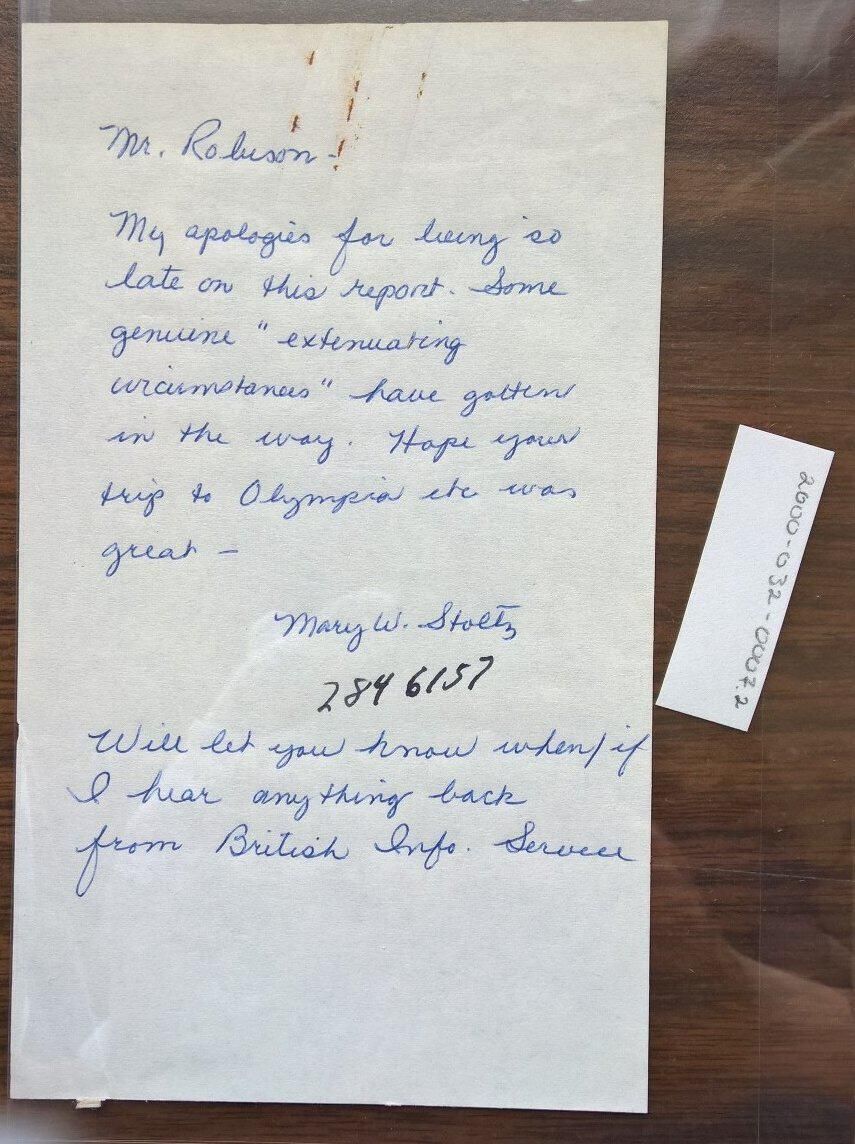 Mr. Robison -
My apologies for being so
late on this report. Some
genuine "extenuating
circumstances" have gotten
in the way. Hope your
trip to Olympia etc was
great -
Mary W. Stoltz
284 6157
Will let you know when/if
I hear anything back
from British Info. Service
2000-032-0007.2